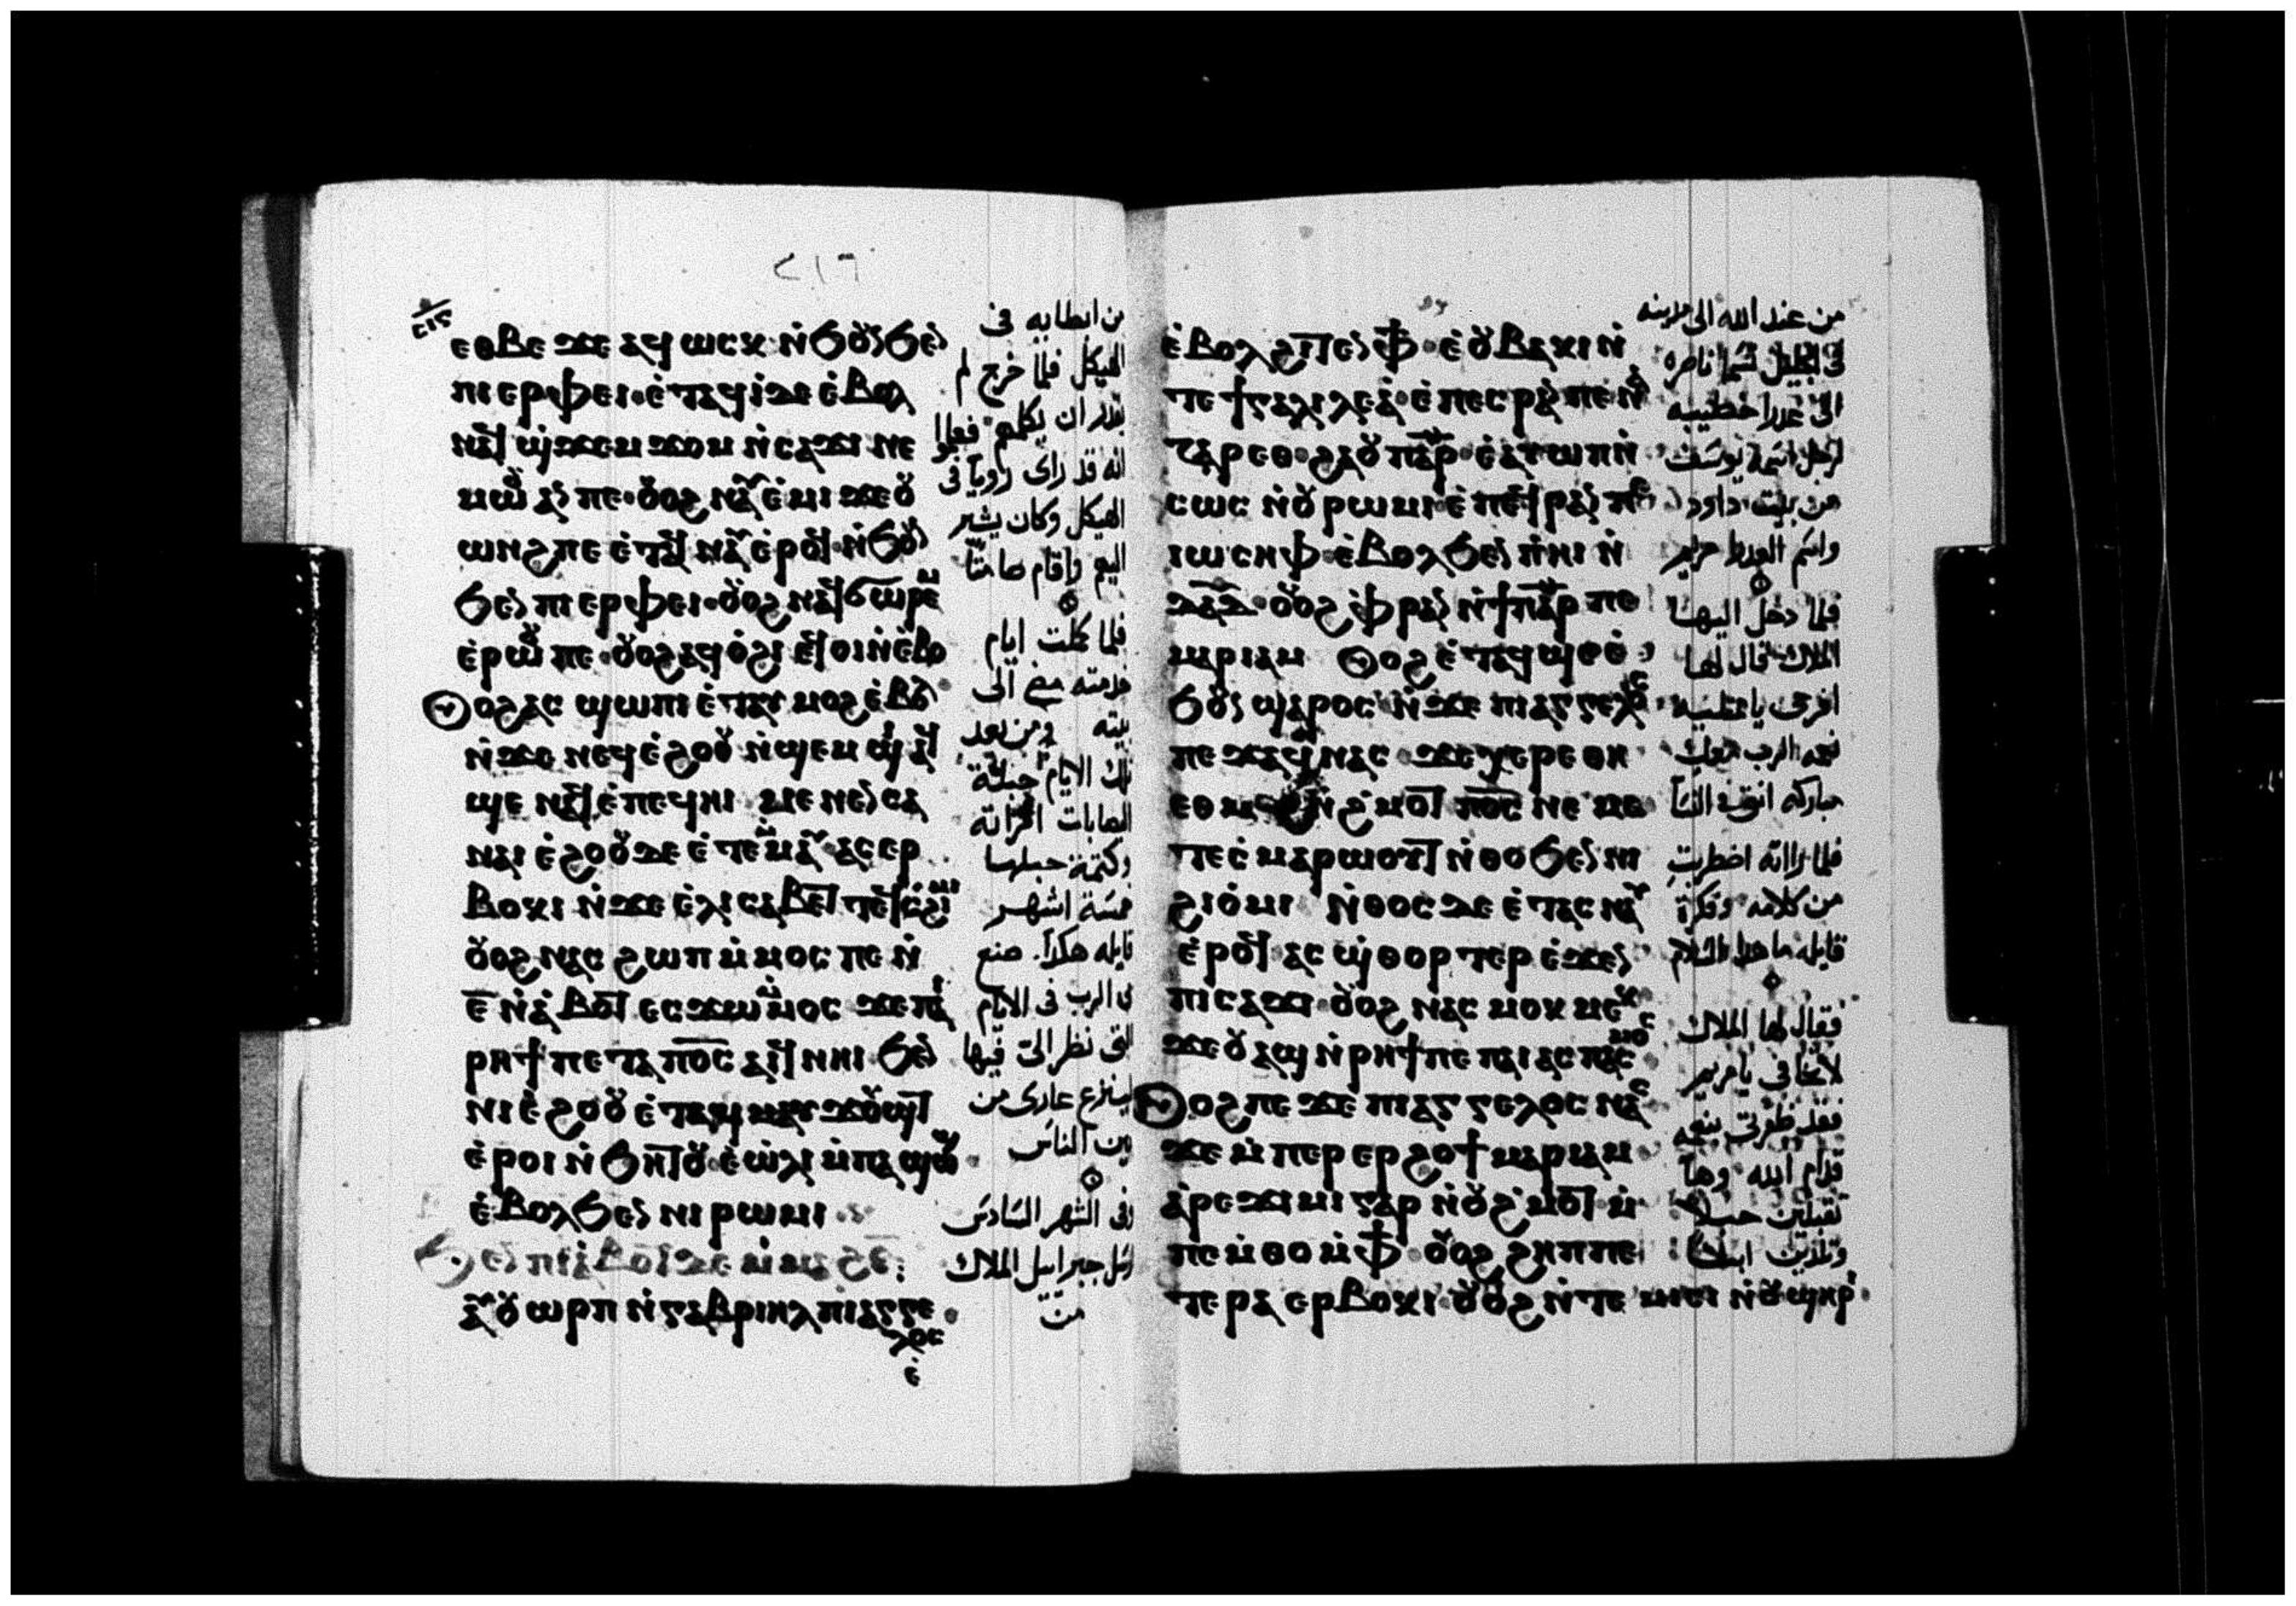 ٢١٦
ⲉⲑⲃⲉ ϫⲉ ⲁϥ ⲱⲥⲕ ⲛ̀ϧⲟⲩⲛ ϧⲉⲛ
ⲡⲓⲉⲣⲫⲉⲓ· ⲉ̀ⲧⲁϥⲓ̀ⲇⲉ ⲉ̀ⲃⲟⲗ
ⲛⲁϥ ϣ̀ϫⲉⲙ ϫⲟⲙ ⲛ̀ⲥⲁϫⲓ ⲛⲉ
ⲙⲱⲟⲩ ⲁⲛ ⲡⲉ· ⲟⲩⲟϩ ⲛⲁⲩ ⲉ̀ⲙⲓ ϫⲉⲟⲩ
ⲱⲛϩ ⲡⲉ ⲉ̀ⲧⲁϥ ⲛⲁⲩ ⲉ̀ⲣⲟϥ ⲛ̀ϧⲟⲩⲛ
ϧⲉⲛ ⲡⲓⲉⲣⲫⲉⲓ· ⲟⲩⲟϩ ⲛⲁϥϭⲱⲣⲉⲙ
ⲉ̀ⲣⲱⲟⲩ ⲡⲉ· ⲟⲩⲟϩ ⲁϥⲟ̀ϩⲓ ⲉϥⲟⲓ ⲛ̀ⲉ̀ⲃⲟ
ⲟⲩⲟϩ ⲁⲥ ϣⲱⲡⲓ ⲉ̀ⲧⲁⲩ ⲙⲟϩ ⲉ̀ⲃⲟⲗ
ⲛ̀ϫⲉ ⲛⲉϥⲉ̀ϩⲟⲟⲩ ⲛ̀ϣⲉⲙ ϣⲓ ⲁϥ
ϣⲉ ⲛⲁϥ ⲉ̀ⲡⲉϥⲏⲓ ⲙⲉⲛⲉⲛⲥⲁ
ⲛⲁⲓ ⲉ̀ϩⲟⲟⲩ ⲇⲉ ⲉ̀ⲧⲉⲙⲙⲁⲩ ⲁⲥⲉⲣ
ⲃⲟⲕⲓ ⲛ̀ϫⲉ ⲉ̀ⲗⲓⲥⲁⲃⲉⲧ ⲧⲉϥⲥ̀ϩⲓⲙⲓ
ⲟⲩⲟϩ ⲛⲁⲥ ϩⲱⲡ ⲙ̀ⲙⲟⲥ ⲡⲉ ⲛ̀
ⲉ̅ ⲛ̀ⲁ̀ⲃⲟⲧ ⲉⲥϫⲱ ⲙ̀ⲙⲟⲥ ϫⲉ ⲡⲁⲓ
ⲣⲏϯ ⲡⲉⲧⲁ ⲡⲟ̅ⲥ̅ ⲁⲓϥ ⲛⲏⲓ ϧⲉⲛ
ⲛⲓⲉ̀ϩⲟⲟⲩ ⲉ̀ⲧⲁϥ ⲛⲁⲩ ϫⲟⲩϣⲧ
ⲉ̀ⲣⲟⲓ ⲛ̀ϧⲏⲧⲟⲩ ⲉ̀ⲱ̀ⲗⲓ ⲙ̀ⲡⲁϣⲱϣ
ⲉ̀ⲃⲟⲗ ϧⲉⲛ ⲛⲓⲣⲱⲙⲓ
ϧⲉⲛ ⲡⲓⲁ̀ⲃⲟⲧ ⲇⲉ ⲙ̀ⲙⲁϩ ⲋ̅
ⲁⲩ ⲟⲩⲱⲣⲡ ⲛ̀ⲅⲁⲃⲣⲓⲏⲗ ⲡⲓⲁⲅⲅⲉ
ⲗⲟⲥ
ⲉ̀
من ابطايه فى
الهيكل فلما خرج لم
يقدر ان يكلمهم فعلموا
انه قد راى رويا فى
الهيكل وكان يشير
اليهم واقام صامتا
فلما كملت ايام
خدمته مضى الى
بيته ومن بعد
تلك الايام حبلت
اليصابات امراته
وكتمت حبلها
خمسة اشهر
قايله هكذا صنع
لى الرب فى الايام
التى نظر الى فيها
لينزع عارى من
بين الناس
وفى الشهر السادس
ارسل جبراييل الملاك
من
ⲉ̀ⲃⲟⲗ ϩⲓⲧⲉⲛ ⲫϯ· ⲉ̀ⲟⲩⲃⲁⲕⲓ ⲛ̀
ⲧⲉ ϯⲅⲁⲗⲓⲗⲉⲁ̀· ⲉ̀ⲡⲉⲥⲣⲁⲛ ⲡⲉ ⲛⲁ
ⲍⲁⲣⲉⲑ· ϩⲁ ⲟⲩⲡⲁⲣ· ⲉ̀ⲁⲩⲱⲡ ⲛ̀
ⲥⲱⲥ ⲛ̀ⲟⲩⲣⲱⲙⲓ· ⲉ̀ⲡⲉϥⲣⲁⲛ ⲡⲉ
ⲓⲱⲥⲏⲫ· ⲉ̀ⲃⲟⲗ ϧⲉⲛ ⲡ̀ⲏⲓ ⲛ̀
ⲇⲁ̅ⲇ̅· ⲟⲩⲟϩ ⲫ̀ⲣⲁⲛ ⲛ̀ϯⲡⲁⲣ ⲡⲉ
ⲙⲁⲣⲓⲁⲙ ⲟⲩⲟϩ ⲉ̀ⲧⲁϥϣⲉ ⲉ̀
ϧⲟⲩⲛ ϣⲁⲣⲟⲥ ⲛ̀ϫⲉ ⲡⲓⲁⲅⲅⲉⲗⲟⲥ
ⲡⲉϫⲁϥ ⲛⲁⲥ ϫⲉ ⲭⲉⲣⲉ ⲑⲏ
ⲉⲑⲙⲉϩ ⲛ̀ϩ̀ⲙⲟⲧ ⲡⲟ̅ⲥ̅ ⲛⲉ ⲙⲉ
ⲧⲉⲥ̀ⲙⲁⲣⲱⲟⲩⲧ ⲛ̀ⲑⲟ ϧⲉⲛ ⲛⲓ
ϩⲓⲟ̀ⲙⲓ ⲛ̀ⲑⲟⲥ ⲇⲉ ⲉ̀ⲧⲁⲥ ⲛⲁⲩ
ⲉ̀ⲣⲟϥ ⲁⲥ ϣ̀ⲑⲟⲣⲧⲉⲣ ⲉ̀ϫⲉⲛ
ⲡⲓⲥⲁϫⲓ· ⲟⲩⲟϩ ⲛⲁⲥ ⲙⲟⲕ ⲙⲉⲕ
ϫⲉ ⲟⲩ ⲁϣ ⲛ̀ⲣⲏϯ ⲡⲉ ⲡⲁⲓⲁⲥⲡⲁⲥⲙⲟⲥ
ⲟⲩⲟϩ ⲡⲉϫⲉ ⲡⲓⲁⲅⲅⲉⲗⲟⲥ ⲛⲁⲥ
ϫⲉ ⲙ̀ⲡⲉⲣⲉⲣϩⲟϯ ⲙⲁⲣⲓⲁⲙ
ⲁ̀ⲣⲉϫⲓⲙⲓ ⲅⲁⲣ ⲛ̀ⲟⲩϩ̀ⲙⲟⲧ ⲙ̀
ⲡⲉⲙ̀ⲑⲟ ⲙ̀ⲫϯ· ⲟⲩⲟϩ ϩⲏⲡⲡⲉ
ⲧⲉⲣⲁ ⲉⲣⲃⲟⲕⲓ ⲟⲩⲟϩ ⲛ̀ⲧⲉ ⲙⲓⲥⲓ ⲛ̀ⲟⲩϣⲏⲣⲓ
من عند الله الى مدينه
فى الجليل تسما ناصره
الى عدرا خطيبه
لرجل اسمه يوسف
من بيت داود
واسم العدرا مريم
فلما دخل اليها
الملاك قال لها
افرحى يا ممتليه
نعمه الرب معك
مباركه انتى فى النسا
فلما راته اضطربت
من كلامه وفكرة
قايله ما هدا السلام
فقال لها الملاك
لا تخافى يا مريم
فقد ظفرتى بنعمه
قدام الله وها
تقبلين حبلا
وتلدين ابنا